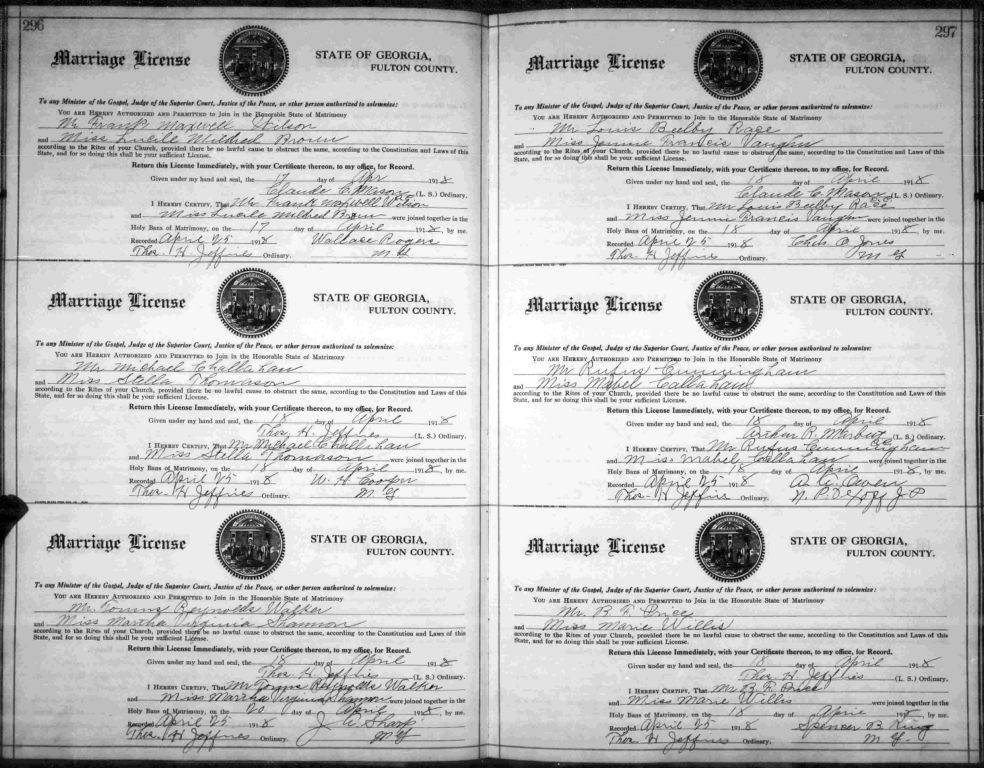 296
Marriage License
STATE OF GEORGIA,
FULTON COUNTY.
To any Minister of the Gospel, Judge of the Superior Court, Justice of the Peace, or other person authorized to solemnize:
YOU ARE HEREBY AUTHORIZED AND PERMITTED to Join in the Honorable State of Matrimony
Mr Frank Maxwell Wilson
and Miss Lucile Mildred Brown
according to the Rites of your Church, provided there be no lawful cause to obstruct the same, according to the Constitution and Laws of this
State, and for so doing this shall be your sufficient License.
Return this License Immediately, with your Certificate thereon, to my office, for Record.
Given under my hand and seal, the 17 day of Apr 1918
Claude C. Mason (L. S.) Ordinary.
I HEREBY CERTIFY, That Mr Frank Maxwell Wilson
and Miss Lucile Mildred Brown were joined together in the
Holy Bans of Matrimony, on the 17 day of April 1918, by me.
Recorded April 25 1918 Wallace Rogers
Thos. H Jeffries Ordinary. M G
Marriage License
STATE OF GEORGIA,
FULTON COUNTY.
To any Minister of the Gospel, Judge of the Superior Court, Justice of the Peace, or other person authorized to solemnize:
YOU ARE HEREBY AUTHORIZED AND PERMITTED to Join in the Honorable State of Matrimony
Mr Michael Challahan
and Miss Stella Thomason
according to the Rites of your Church, provided there be no lawful cause to obstruct the same, according to the Constitution and Laws of this
State, and for so doing this shall be your sufficient License.
Return this License Immediately, with your Certificate thereon, to my office, for Record.
Given under my hand and seal, the 18 day of April 1918
Thos. H. Jeffries (L. S.) Ordinary.
I HEREBY CERTIFY, That Mr Michael Challahan
and Miss Stella Thomason were joined together in the
Holy Bans of Matrimony, on the 18 day of April 1918, by me.
Recorded April 25 1918 W. H Cooper
Thos. H Jeffries Ordinary. M G
Marriage License
STATE OF GEORGIA,
FULTON COUNTY.
To any Minister of the Gospel, Judge of the Superior Court, Justice of the Peace, or other person authorized to solemnize:
YOU ARE HEREBY AUTHORIZED AND PERMITTED to Join in the Honorable State of Matrimony
Mr. Reynolds Walker
and Miss Martha Virginia Shannon
according to the Rites of your Church, provided there be no lawful cause to obstruct the same, according to the Constitution and Laws of this
State, and for so doing this shall be your sufficient License.
Return this License Immediately, with your Certificate thereon, to my office, for Record.
Given under my hand and seal, the 18 day of April 1918
Thos. H Jeffries (L. S.) Ordinary.
I HEREBY CERTIFY, That Mr Reynolds Walker
and Miss Martha Virginia Shannon were joined together in the
Holy Bans of Matrimony, on the 20 day of April 1918, by me.
Recorded April 25 1918 J A Sharp
Thos. H Jeffries Ordinary. M G
297
Marriage License
STATE OF GEORGIA,
FULTON COUNTY.
To any Minister of the Gospel, Judge of the Superior Court, Justice of the Peace, or other person authorized to solemnize:
YOU ARE HEREBY AUTHORIZED AND PERMITTED to Join in the Honorable State of Matrimony
Mr Louis Beelby Race
and Miss Jennie Francis Vaughn
according to the Rites of your Church, provided there be no lawful cause to obstruct the same, according to the Constitution and Laws of this
State, and for so doing this shall be your sufficient License.
Return this License Immediately, with your Certificate thereon, to my office, for Record.
Given under my hand and seal, the 18 day of April 1918
Claude C. Mason (L. S.) Ordinary.
I HEREBY CERTIFY, That Mr Louis Beelby Race
and Miss Jennie Francis Vaughn were joined together in the
Holy Bans of Matrimony, on the 18 day of April 1918, by me.
Recorded April 25 1918 Chas. O Jones
Thos. H Jeffries Ordinary. M G
Marriage License
STATE OF GEORGIA,
FULTON COUNTY.
To any Minister of the Gospel, Judge of the Superior Court, Justice of the Peace, or other person authorized to solemnize:
YOU ARE HEREBY AUTHORIZED AND PERMITTED to Join in the Honorable State of Matrimony
Mr Rufus Cunningham
and Miss Mabel Callaham
according to the Rites of your Church, provided there be no lawful cause to obstruct the same, according to the Constitution and Laws of this
State, and for so doing this shall be your sufficient License.
Return this License Immediately, with your Certificate thereon, to my office, for Record.
Given under my hand and seal, the 18 day of April 1918
Arthur R. (L. S.) Ordinary.
I HEREBY CERTIFY, That Mr Rufus Cunningham
and Miss Mabel Callaham were joined together in the
Holy Bans of Matrimony, on the 18 day of April 1918, by me.
Recorded April 25 1918 A. C. Owen
Thos. H Jeffries Ordinary. N. P. J P
Marriage License
STATE OF GEORGIA,
FULTON COUNTY.
To any Minister of the Gospel, Judge of the Superior Court, Justice of the Peace, or other person authorized to solemnize:
YOU ARE HEREBY AUTHORIZED AND PERMITTED to Join in the Honorable State of Matrimony
Mr. B. F. Price
and Miss Marie Willis
according to the Rites of your Church, provided there be no lawful cause to obstruct the same, according to the Constitution and Laws of this
State, and for so doing this shall be your sufficient License.
Return this License Immediately, with your Certificate thereon, to my office, for Record.
Given under my hand and seal, the 18 day of April 1918
Thos. H. Jeffries (L. S.) Ordinary.
I HEREBY CERTIFY, That Mr B. F. Price
and Miss Marie Willis were joined together in the
Holy Bans of Matrimony, on the 18 day of April 1918, by me.
Recorded April 25 1918 Spencer B King
Thos. H Jeffries Ordinary. M G